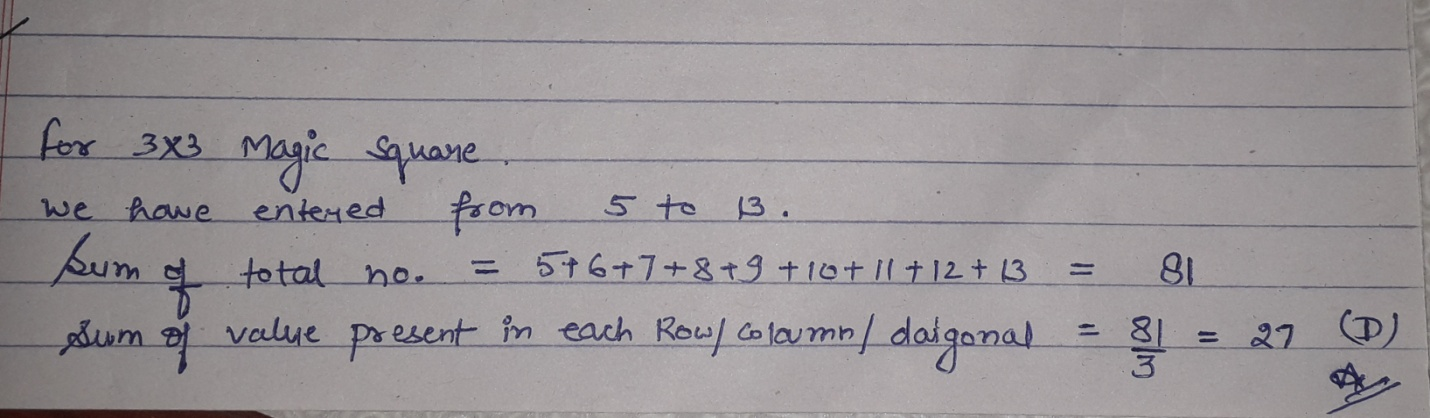 for 3x3 Magic Square.
we have entered from 5 to 13.
Sum of total no. = 5+6+7+8+9+10+11+12+13 = 81
Sum of value present in each Row/Coloumn/daigonal = 81/3 = 27 (D)